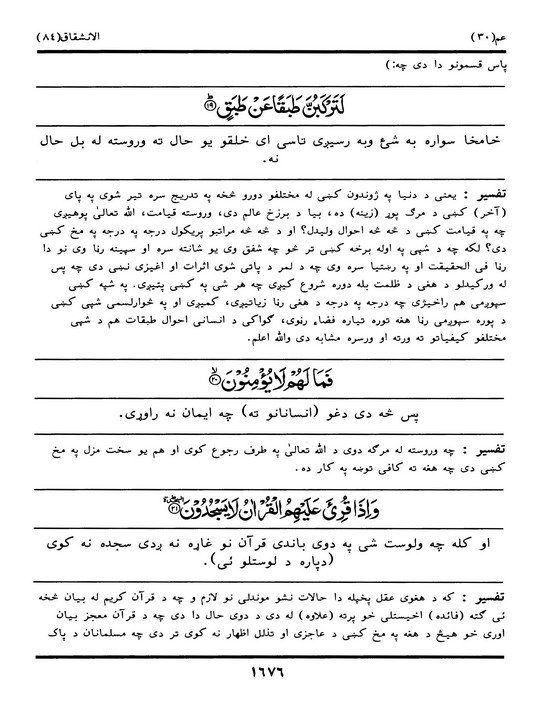 عم(٣٠) الانشقاق(٨٤)
پاس قسمونو دا دی چه:)
لَتَرْكَبُنَّ طَبَقًا عَنْ طَبَقٍ ۱۹
خامخا سواره به شئ وبه رسیږی تاسی ای خلقو یو حال ته وروسته له بل حال
نه.
تفسیر : یعنی د دنیا په ژوندون کښی له مختلفو دورو څخه په تدریج سره تیر شوی په پای
(آخر) کښی د مرګ پوړ (زینه) ده، بیا د برزخ عالم دی، وروسته قیامت، الله تعالیٰ پوهیږی
چه په قیامت کښی د څه څه احوال ولیدل؟ او د څه څه مراتبو پریکول درجه په درجه په مخ کښی
دی؟ لکه چه د شپی په اوله برخه کښی تر څو چه شفق وی یو شانته سره او سپینه رڼا وی نو دا
رڼا فی الحقیقت او په رښتیا سره وی چه د لمر د پاتی شوی اثرات او اغیزی نښی دی چه پس
له ورکیدلو د هغی د ظلمت بله دوره شروع کیږی چه هر شی په کښی پټیږی. په شپه کښی
سپوږمی هم راخیژی چه درجه په درجه د هغی رڼا زیاتیږی، کمیږی او په څوارلسمی شپی کښی
د پوره سپوږمی رڼا هغه توره تیاره فضاء رڼوی، ګواکی د انسانی احوال طبقات هم د شپی
مختلفو کیفیاتو ته ورته او ورسره مشابه دی والله اعلم.
فَمَا لَهُمْ لَا يُؤْمِنُونَ ۲۰
پس څه دی دغو (انسانانو ته) چه ایمان نه راوړی.
تفسیر : چه وروسته له مرګه دوی د الله تعالیٰ په طرف رجوع کوی او هم یو سخت منزل په مخ
کښی دی چه هغه ته کافی توښه په کار ده.
وَإِذَا قُرِئَ عَلَيْهِمُ الْقُرْآنُ لَا يَسْجُدُونَ ۲۱
او کله چه ولوست شی په دوی باندی قرآن نو غاړه نه ږدی سجده نه کوی
(دپاره د لوستلو ئی).
تفسیر : که د هغوی عقل پخپله دا حالات نشو موندلی نو لازم و چه د قرآن کریم له بیان څخه
ئی ګته (فائده) اخیستلی خو پرته (علاوه) له دی د دوی حال دا دی چه د قرآن معجز بیان
اوری خو هیڅ د هغه په مخ کښی د عاجزی او تذلل اظهار نه کوی تر دی چه مسلمانان د پاک
١٦٧٦